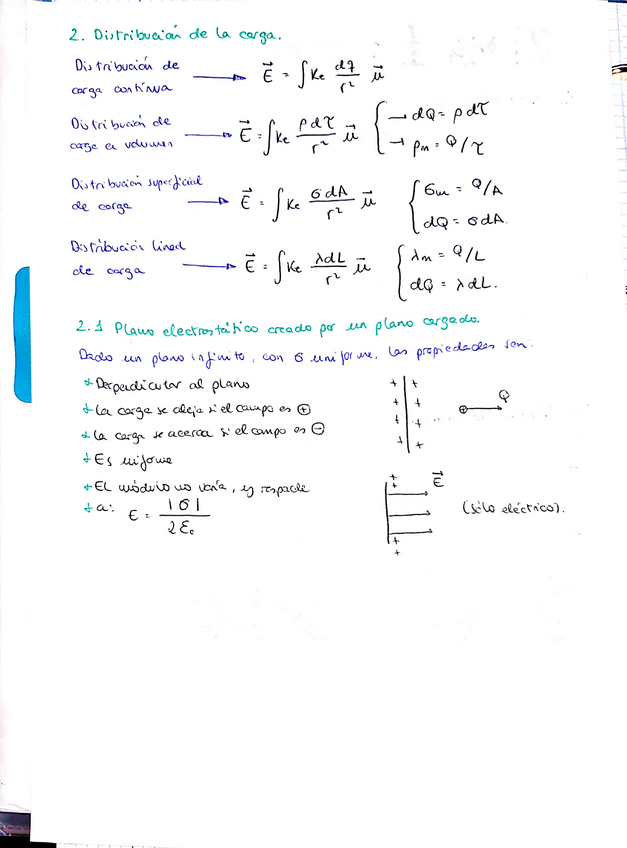 2. Distribución de la carga.
Distribución de carga continua → E⃗ = ∫ Ke dq/r² u⃗
Distribución de carga en volumen → E⃗ = ∫ Ke ρdτ/r² u⃗ { → dQ = ρdτ → ρm = Q/τ
Distribución superficial de carga → E⃗ = ∫ Ke σdA/r² u⃗ { σm = Q/A dQ = σdA.
Distribución lineal de carga → E⃗ = ∫ Ke λdL/r² u⃗ { λm = Q/L dQ = λdL.
2.1 Plano electrostático creado por un plano cargado.
Dado un plano infinito, con σ uniforme, las propiedades son:
+ Perpendicular al plano
+ La carga se aleja si el campo es ⊕
+ La carga se acerca si el campo es ⊖
+ Es uniforme
+ El módulo no varía, y responde
+ a: E = |σ|/2ε₀
+ + + + + + + + ⊕ → Q
+ + E⃗ + + (sólo eléctrico).